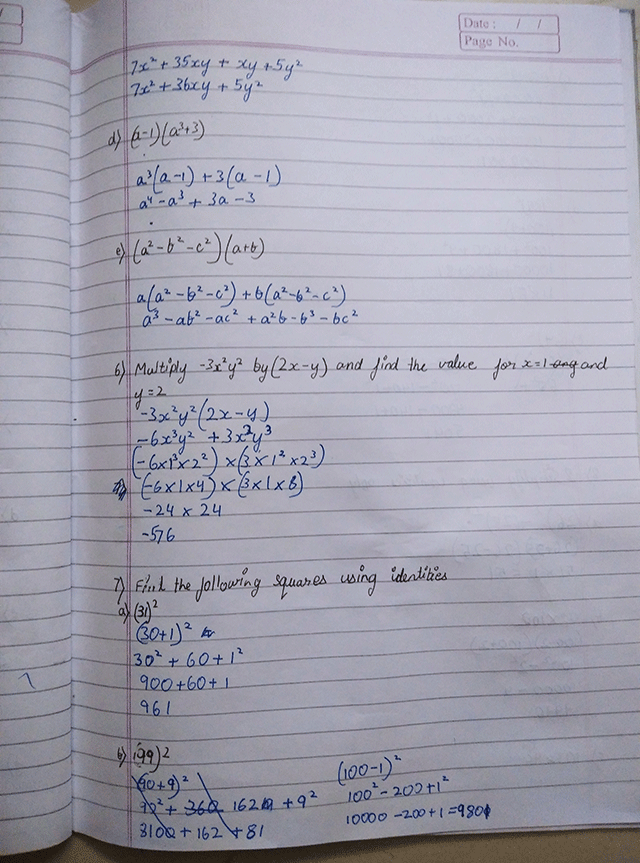 Date : / /
Page No.
7x² + 35xy + xy + 5y²
7x² + 36xy + 5y²
d) (a-1)(a³+3)
a³(a-1) + 3(a-1)
a⁴ - a³ + 3a - 3
e) (a² - b² - c²)(a+b)
a(a² - b² - c²) + b(a² - b² - c²)
a³ - ab² - ac² + a²b - b³ - bc²
6) Multiply -3x²y² by (2x-y) and find the value for x=1 and
y=2
-3x²y²(2x-y)
-6x³y² + 3x²y³
(-6x1³x2²) x (3x1²x2³)
(-6x1x4) x (3x1x8)
-24 x 24
-576
7) Find the following squares using identities
a) (31)²
(30+1)²
30² + 60 + 1²
900+60+1
961
b) (99)2
(90+9)²
162 + 9²
3100 + 162 + 81
(100-1)²
100² - 200 + 1²
10000 - 200 + 1 = 9801